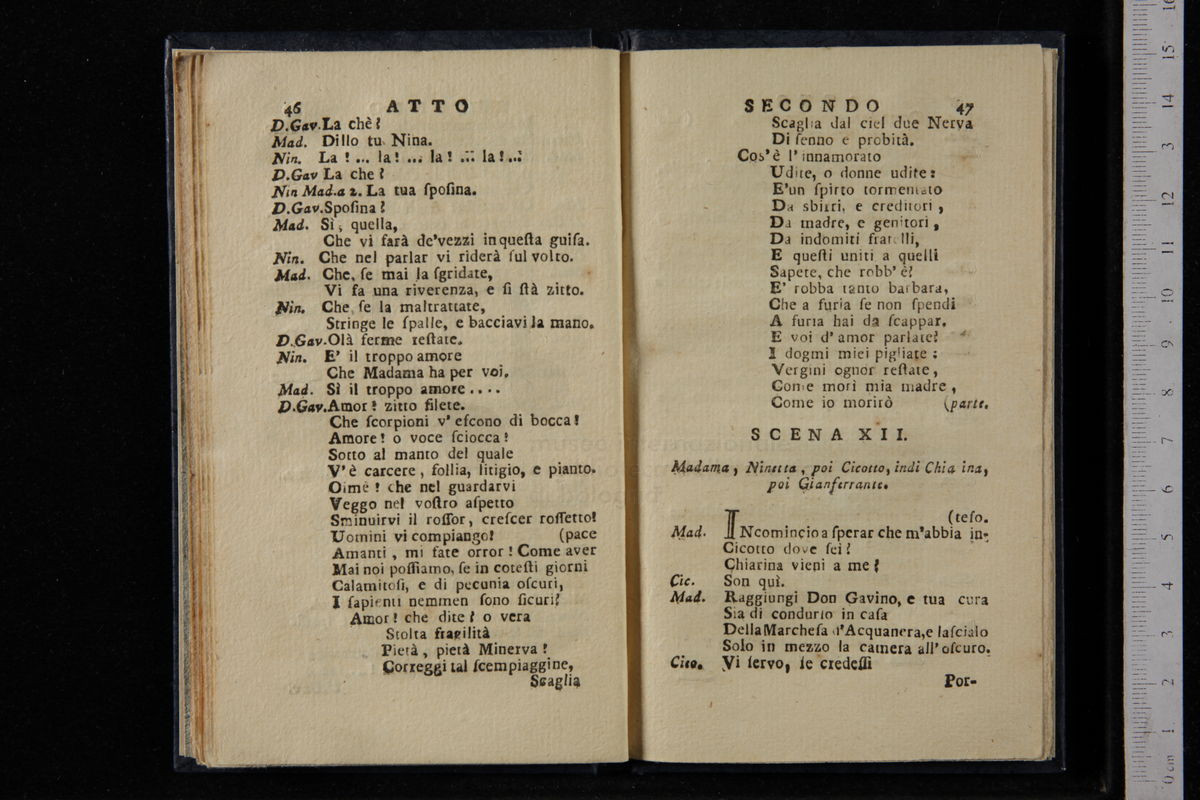 46 ATTO
D.Gav. La chè?
Mad. Dillo tu Nina.
Nin. La! ... la! ... la! ... la! ...
D.Gav La che?
Nin Mad.a 2. La tua ſpoſina.
D.Gav. Spoſina?
Mad. Sì, quella,
Che vi farà de'vezzi in queſta guiſa.
Nin. Che nel parlar vi riderà ſul volto.
Mad. Che, ſe mai la ſgridate,
Vi fa una riverenza, e ſi ſtà zitto.
Nin. Che ſe la maltrattate,
Stringe le ſpalle, e bacciavi la mano.
D.Gav. Olà ferme reſtate.
Nin. E' il troppo amore
Che Madama ha per voi.
Mad. Sì il troppo amore ....
D.Gav. Amor? zitto filete.
Che ſcorpioni v' eſcono di bocca!
Amore! o voce ſciocca!
Sotto al manto del quale
V'è carcere, follia, litigio, e pianto.
Oimè! che nel guardarvi
Veggo nel voſtro aſpetto
Sminuirvi il roſſor, creſcer roſſetto!
Uomini vi compiango! (pace
Amanti, mi fate orror! Come aver
Mai noi poſſiamo, ſe in coteſti giorni
Calamitoſi, e di pecunia oſcuri,
I ſapienti nemmen ſono ſicuri?
Amor! che dite? o vera
Stolta fragilità
Pietà, pietà Minerva!
Correggi tal ſcempiaggine,
Scaglia
SECONDO 47
Scaglia dal ciel due Nerva
Di ſenno e probità.
Cos'è l'innamorato
Udite, o donne udite:
E'un ſpirto tormentato
Da sbirri, e creditori,
Da madre, e genitori,
Da indomiti fratelli,
E queſti uniti a quelli
Sapete, che robb' è?
E' robba tanto barbara,
Che a furia ſe non ſpendi
A furia hai da ſcappar.
E voi d'amor parlate?
I dogmi miei pigliate:
Vergini ognor reſtate,
Come morì mia madre,
Come io morirò (parte.
SCENA XII.
Madama, Ninetta, poi Cicotto, indi Chia ina,
poi Gianferrante.
(teſo.
Mad. INcomincio a ſperar che m'abbia in-
Cicotto dove ſei?
Chiarina vieni a me?
Cic. Son quì.
Mad. Raggiungi Don Gavino, e tua cura
Sia di condurlo in caſa
Della Marcheſa d'Acquanera, e laſcialo
Solo in mezzo la camera all'oſcuro.
Cico. Vi ſervo, ſe credeſſi
Por-